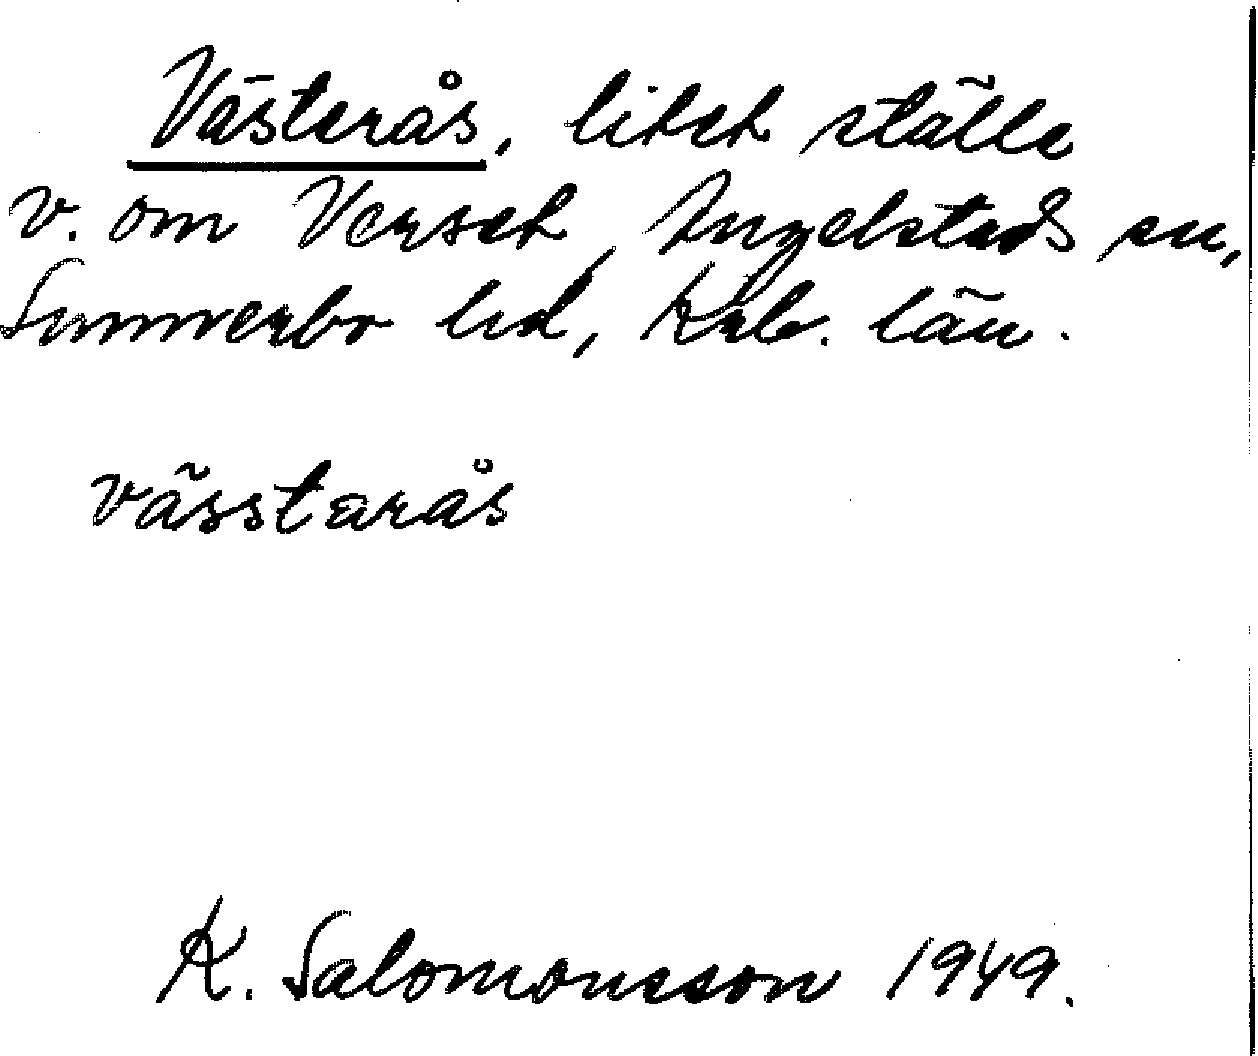 Västerås, litet ställe
v. om Verset, Ingelstads sn,
Sunnerbo hd, Krb. län.
västarås
K. Salomonsson 1949.